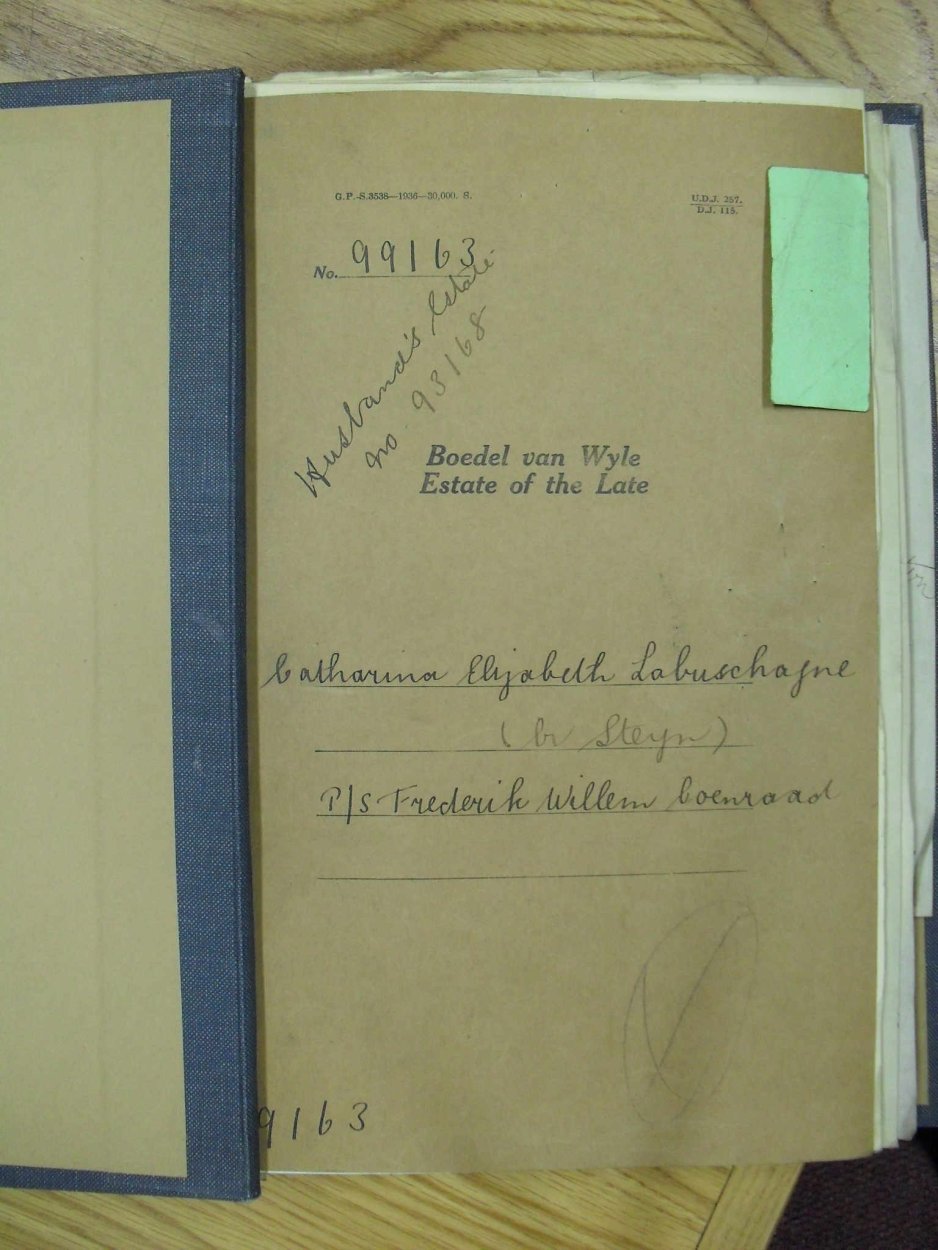 G.P.-S.3538—1936—30,000. S.
U.D.J. 257.
D.J. 118.
No. 99163
Husband's Estate
No 93168
Boedel van Wyle
Estate of the Late
Catharina Elizabeth Labuschagne
(br Steyn)
P/S Frederik Willem Coenraad
9163